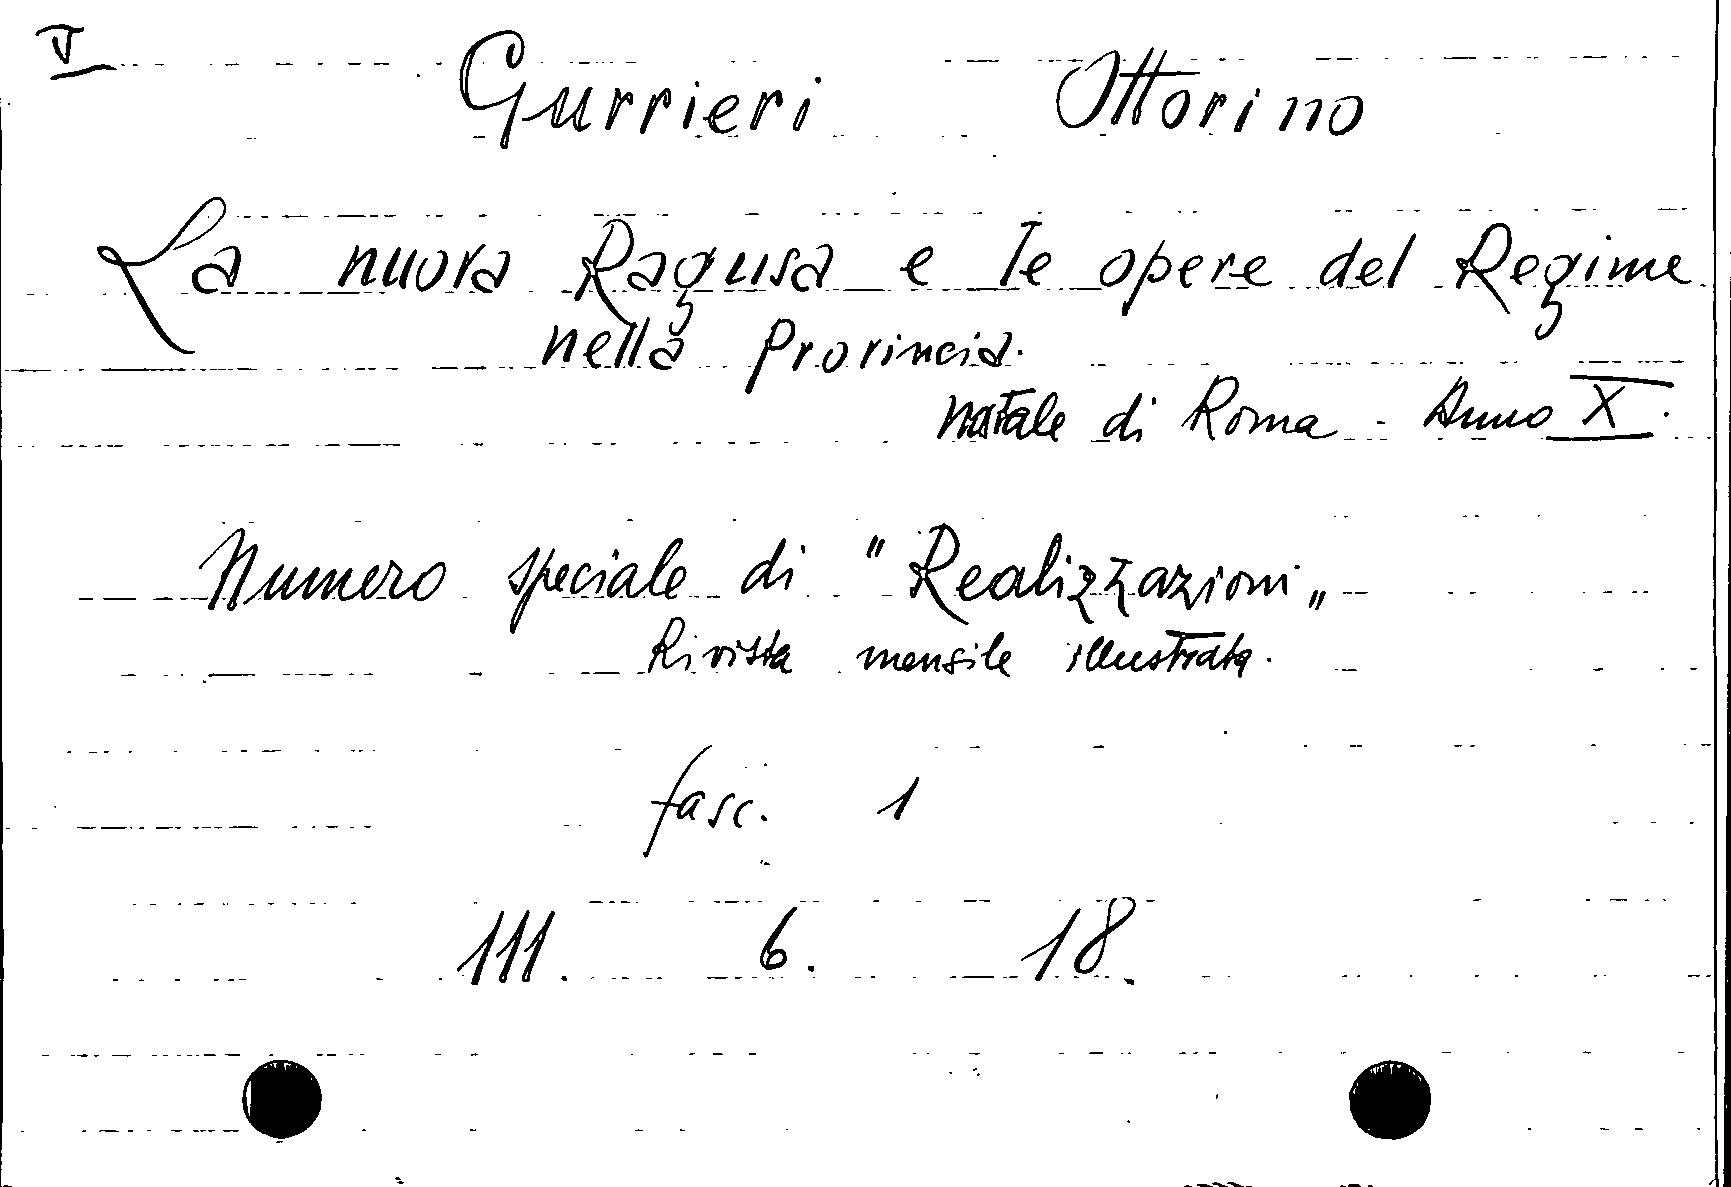 V
Gurrieri Ottorino
La nuova Ragusa e le opere del Regime
nella Provincia.
Natale di Roma - Anno X.
Numero speciale di "Realizzazioni„
Rivista mensile illustrata.
fasc. 1
111. 6. 18.